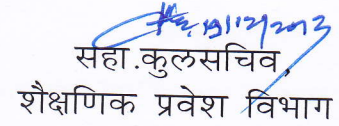 19/12/2013
सहा.कुलसचिव,
शैक्षणिक प्रवेश विभाग